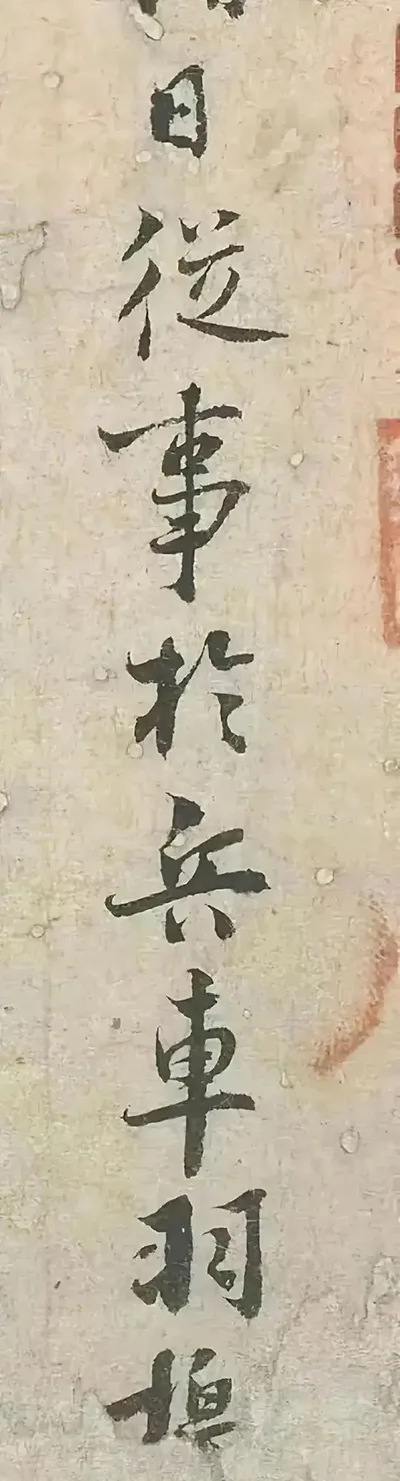 日從事於兵車羽檄